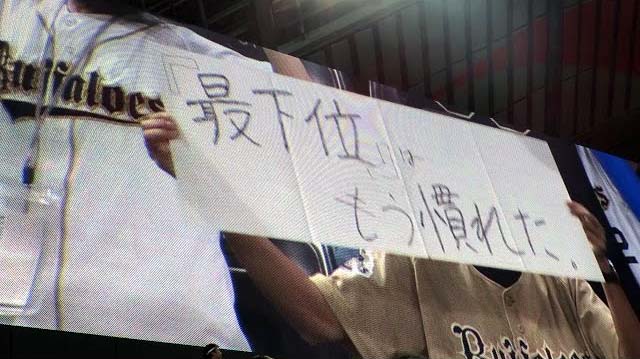 Buffaloes
『最下位には
もう慣れた。
Buffaloes